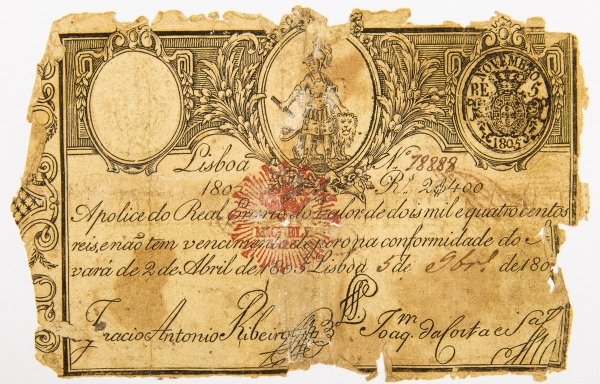 NOVEMBRO 5
RE
1805
Lisboa Nº 78888
180 Rs. 2$400
MIGUEL
Apolice do Real Erario do valor de dois mil e quatro centos
reis, e não tem vencimento de juro na conformidade do
vará de 2 de Abril de 1805 Lisboa 5 de 9br.º de 180
Ignacio Antonio Ribeiro Joaq.m da Costa e S.a